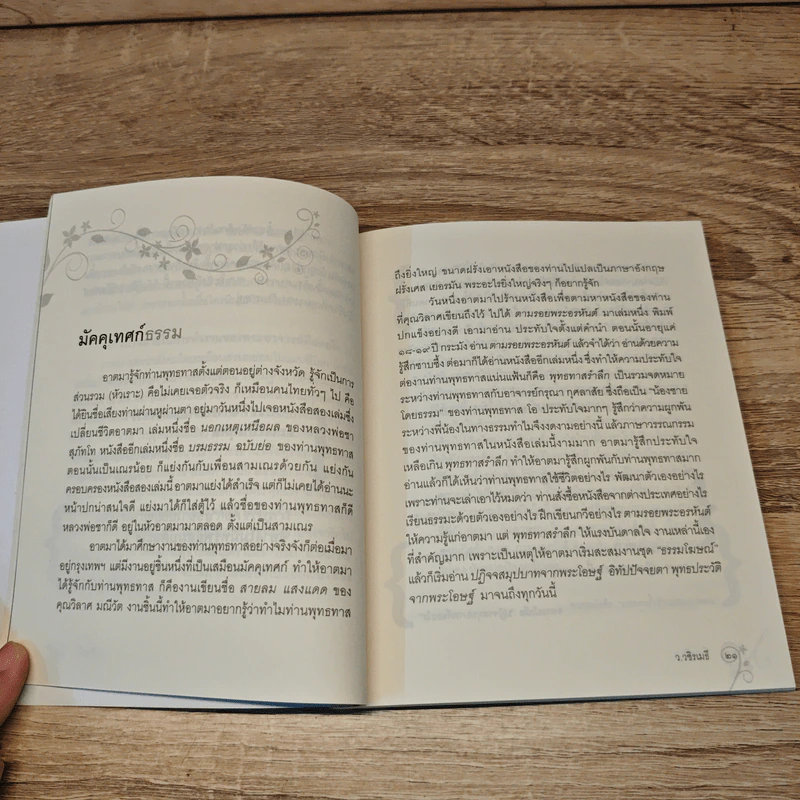 มัคคุเทศก์ธรรม
อาตมารู้จักท่านพุทธทาสตั้งแต่ตอนอยู่ต่างจังหวัด รู้จักเป็นการ
ส่วนรวม (หัวเราะ) คือไม่เคยเจอตัวจริง ก็เหมือนคนไทยทั่วๆ ไป คือ
ได้ยินชื่อเสียงท่านผ่านหูผ่านตา อยู่มาวันหนึ่งไปเจอหนังสือสองเล่มซึ่ง
เปลี่ยนชีวิตอาตมา เล่มหนึ่งชื่อ นอกเหตุเหนือผล ของหลวงพ่อชา
สุภัทโท หนังสืออีกเล่มหนึ่งชื่อ บรมธรรม ฉบับย่อ ของท่านพุทธทาส
ตอนนั้นเป็นเณรน้อย ก็แย่งกันกับเพื่อนสามเณรด้วยกัน แย่งกัน
ครอบครองหนังสือสองเล่มนี้ อาตมาแย่งได้สำเร็จ แต่ก็ไม่เคยได้อ่านนะ
หน้าปกน่าสนใจดี แย่งมาได้ก็ใส่ตู้ไว้ แล้วชื่อของท่านพุทธทาสก็ดี
หลวงพ่อชาก็ดี อยู่ในหัวอาตมามาตลอด ตั้งแต่เป็นสามเณร
อาตมาได้มาศึกษางานของท่านพุทธทาสอย่างจริงจังก็ต่อเมื่อมา
อยู่กรุงเทพฯ แต่มีงานอยู่ชิ้นหนึ่งที่เป็นเสมือนมัคคุเทศก์ ทำให้อาตมา
ได้รู้จักกับท่านพุทธทาส ก็คืองานเขียนชื่อ สายลม แสงแดด ของ
คุณวิลาศ มณีวัต งานชิ้นนี้ทำให้อาตมาอยากรู้ว่าทำไมท่านพุทธทาส
ถึงยิ่งใหญ่ ขนาดฝรั่งเอาหนังสือของท่านไปแปลเป็นภาษาอังกฤษ
ฝรั่งเศส เยอรมัน พระอะไรยิ่งใหญ่จริงๆ ก็อยากรู้จัก
วันหนึ่งอาตมาไปร้านหนังสือเพื่อตามหาหนังสือของท่าน
ที่คุณวิลาศเขียนถึงไว้ ไปได้ ตามรอยพระอรหันต์ มาเล่มหนึ่ง พิมพ์
ปกแข็งอย่างดี เอามาอ่าน ประทับใจตั้งแต่คำนำ ตอนนั้นอายุแค่
๑๘-๑๙ ปี กระมัง อ่าน ตามรอยพระอรหันต์ แล้วจำได้ว่า อ่านด้วยความ
รู้สึกซาบซึ้ง ต่อมาก็ได้อ่านหนังสืออีกเล่มหนึ่ง ซึ่งทำให้ความประทับใจ
ต่องานท่านพุทธทาสแน่นแฟ้นก็คือ พุทธทาสรำลึก เป็นรวมจดหมาย
ระหว่างท่านพุทธทาสกับอาจารย์กรุณา กุศลาสัย ซึ่งถือเป็น “น้องชาย
โดยธรรม” ของท่านพุทธทาส โอ ประทับใจมากๆ รู้สึกว่าความผูกพัน
ระหว่างพี่น้องในทางธรรมทำไมจึงงดงามอย่างนี้ แล้วภาษาวรรณกรรม
ของท่านพุทธทาสในหนังสือเล่มนี้งามมาก อาตมารู้สึกประทับใจ
เหลือเกิน พุทธทาสรำลึก ทำให้อาตมารู้สึกผูกพันกับท่านพุทธทาสมาก
อ่านแล้วก็ได้เห็นว่าท่านพุทธทาสใช้ชีวิตอย่างไร พัฒนาตัวเองอย่างไร
เพราะท่านจะเล่าเอาไว้หมดว่า ท่านสั่งซื้อหนังสือจากต่างประเทศอย่างไร
เรียนธรรมะด้วยตัวเองอย่างไร ฝึกเขียนกวีอย่างไร ตามรอยพระอรหันต์
ให้ความรู้แก่อาตมา แต่ พุทธทาสรำลึก ให้แรงบันดาลใจ งานเหล่านี้เอง
ที่สำคัญมาก เพราะเป็นเหตุให้อาตมาเริ่มสะสมงานชุด “ธรรมโฆษณ์”
แล้วก็เริ่มอ่าน ปฏิจจสมุปบาทจากพระโอษฐ์ อิทัปปัจจยตา พุทธประวัติ
จากพระโอษฐ์ มาจนถึงทุกวันนี้
ว.วชิรเมธี ๒๑